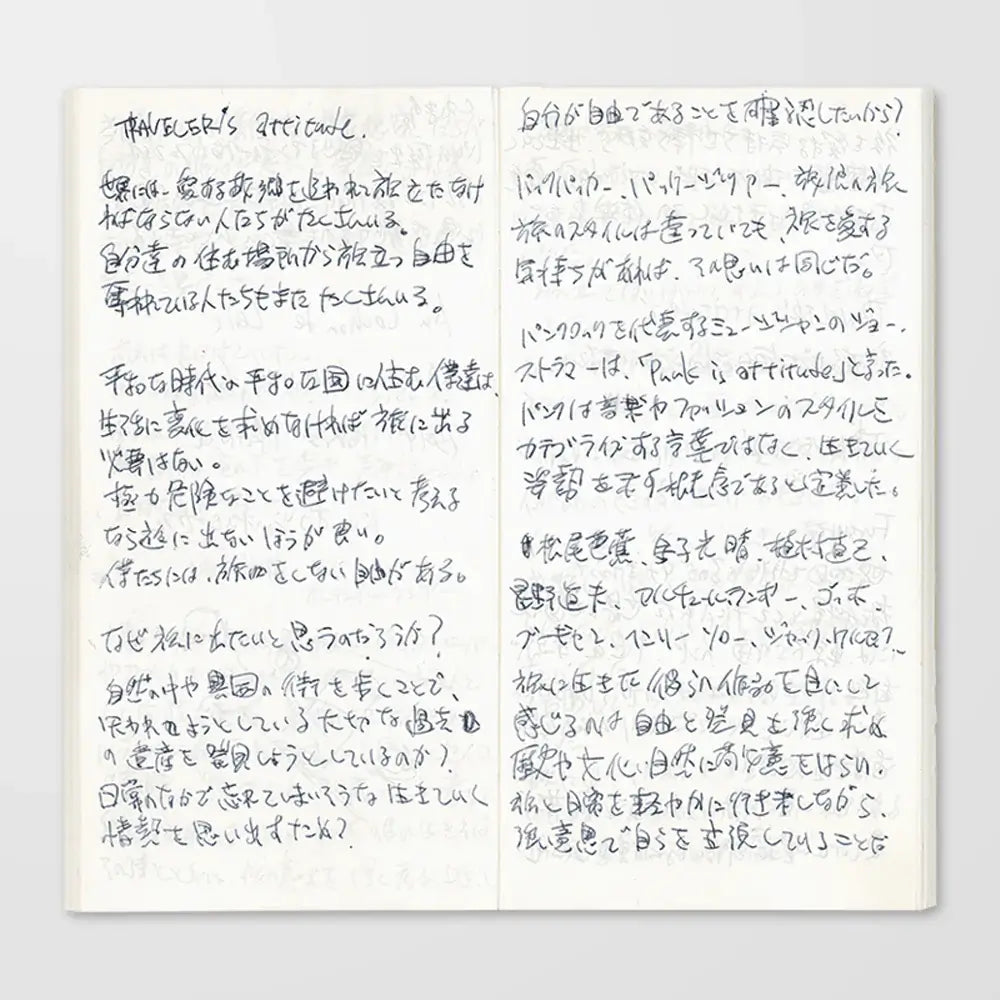 TRAVELER's attitude.
世界には、愛する故郷を追われて旅をしなけ
ればならない人たちがたくさんいる。
自分達の住む場所から旅立つ自由を
奪われている人たちもまたたくさんいる。
平和な時代の平和な国に住む僕達は、
生活に変化を求めなければ旅に出る
必要はない。
極力危険なことを避けたいと考える
なら旅に出ないほうが良い。
僕たちには、旅をしない自由がある。
なぜ旅に出たいと思うのだろうか?
自然の中や異国の街を歩くことで、
失われようとしている大切な過去
の遺産を発見しようとしているのか?
日常のなかで忘れてしまいそうな生きていく
情熱を思い出すため?
自分が自由であることを確認したいから?
バックパッカー、パッケージツアー、放浪の旅
旅のスタイルは違っていても、旅を愛する
気持ちがあれば、その思いは同じだ。
パンクロックを代表するミュージシャンのジョー・
ストラマーは、「Punk is attitude」と言った。
パンクは音楽やファッションのスタイルを
カテゴライズする言葉ではなく、生きていく
姿勢を示す概念であると定義した。
松尾芭蕉、金子光晴、植村直己、
星野道夫、アルチュール・ランボー、ゴッホ、
ブルース・ヘンリー ソロー、ジャック・ケルアック…
旅に生きた彼らの作品を目にして
感じるのは自由と発見を強く求め
歴史や文化、自然に敬意をはらい、
旅と日常を軽やかに行き来しながら、
強い意思で自らを主張していることだ